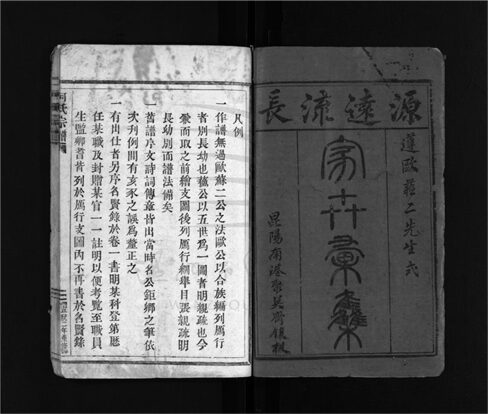 源遠流長
遵歐蘇二先生式
昆陽南港聚英齋鎸板
凡例
一作譜無過歐蘇二公之法歐公以合族編列屬行
者別長幼也蘓公以五世爲一圖者明親疏也今
彙而取之前繪支圖後列屬行綱舉目張親疏明
長幼別而譜法備矣
一舊譜序文詩詞傳章皆出當時名公鉅鄉之筆依
次刋例間有亥豕之誤爲釐正之
一有出仕者另序名賢錄於卷一書明某科登第歷
任某職及封贈某官一一註明以便考覽至職員
生監鄉耆皆列於屬行支圖內不再書於名賢錄